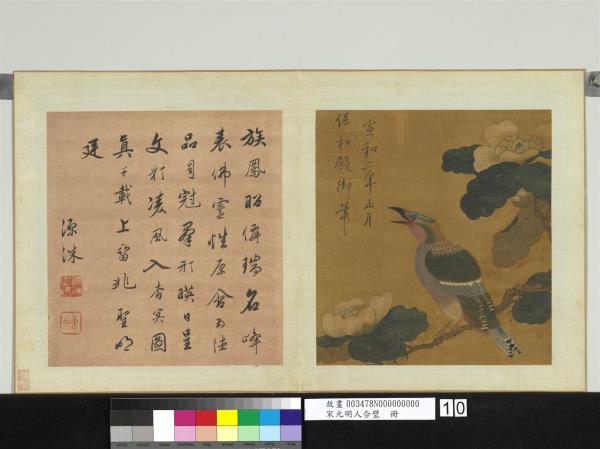 宣和二年正月
保和殿御筆
族鳳昭儔瑞名峰
表佛靈性原含五德
品冠羣形暎日呈
文彩凌風入杳冥圖
真千載上留兆聖明
廷
源洙
故畫 003478N000000000
宋元明人合璧 冊
10